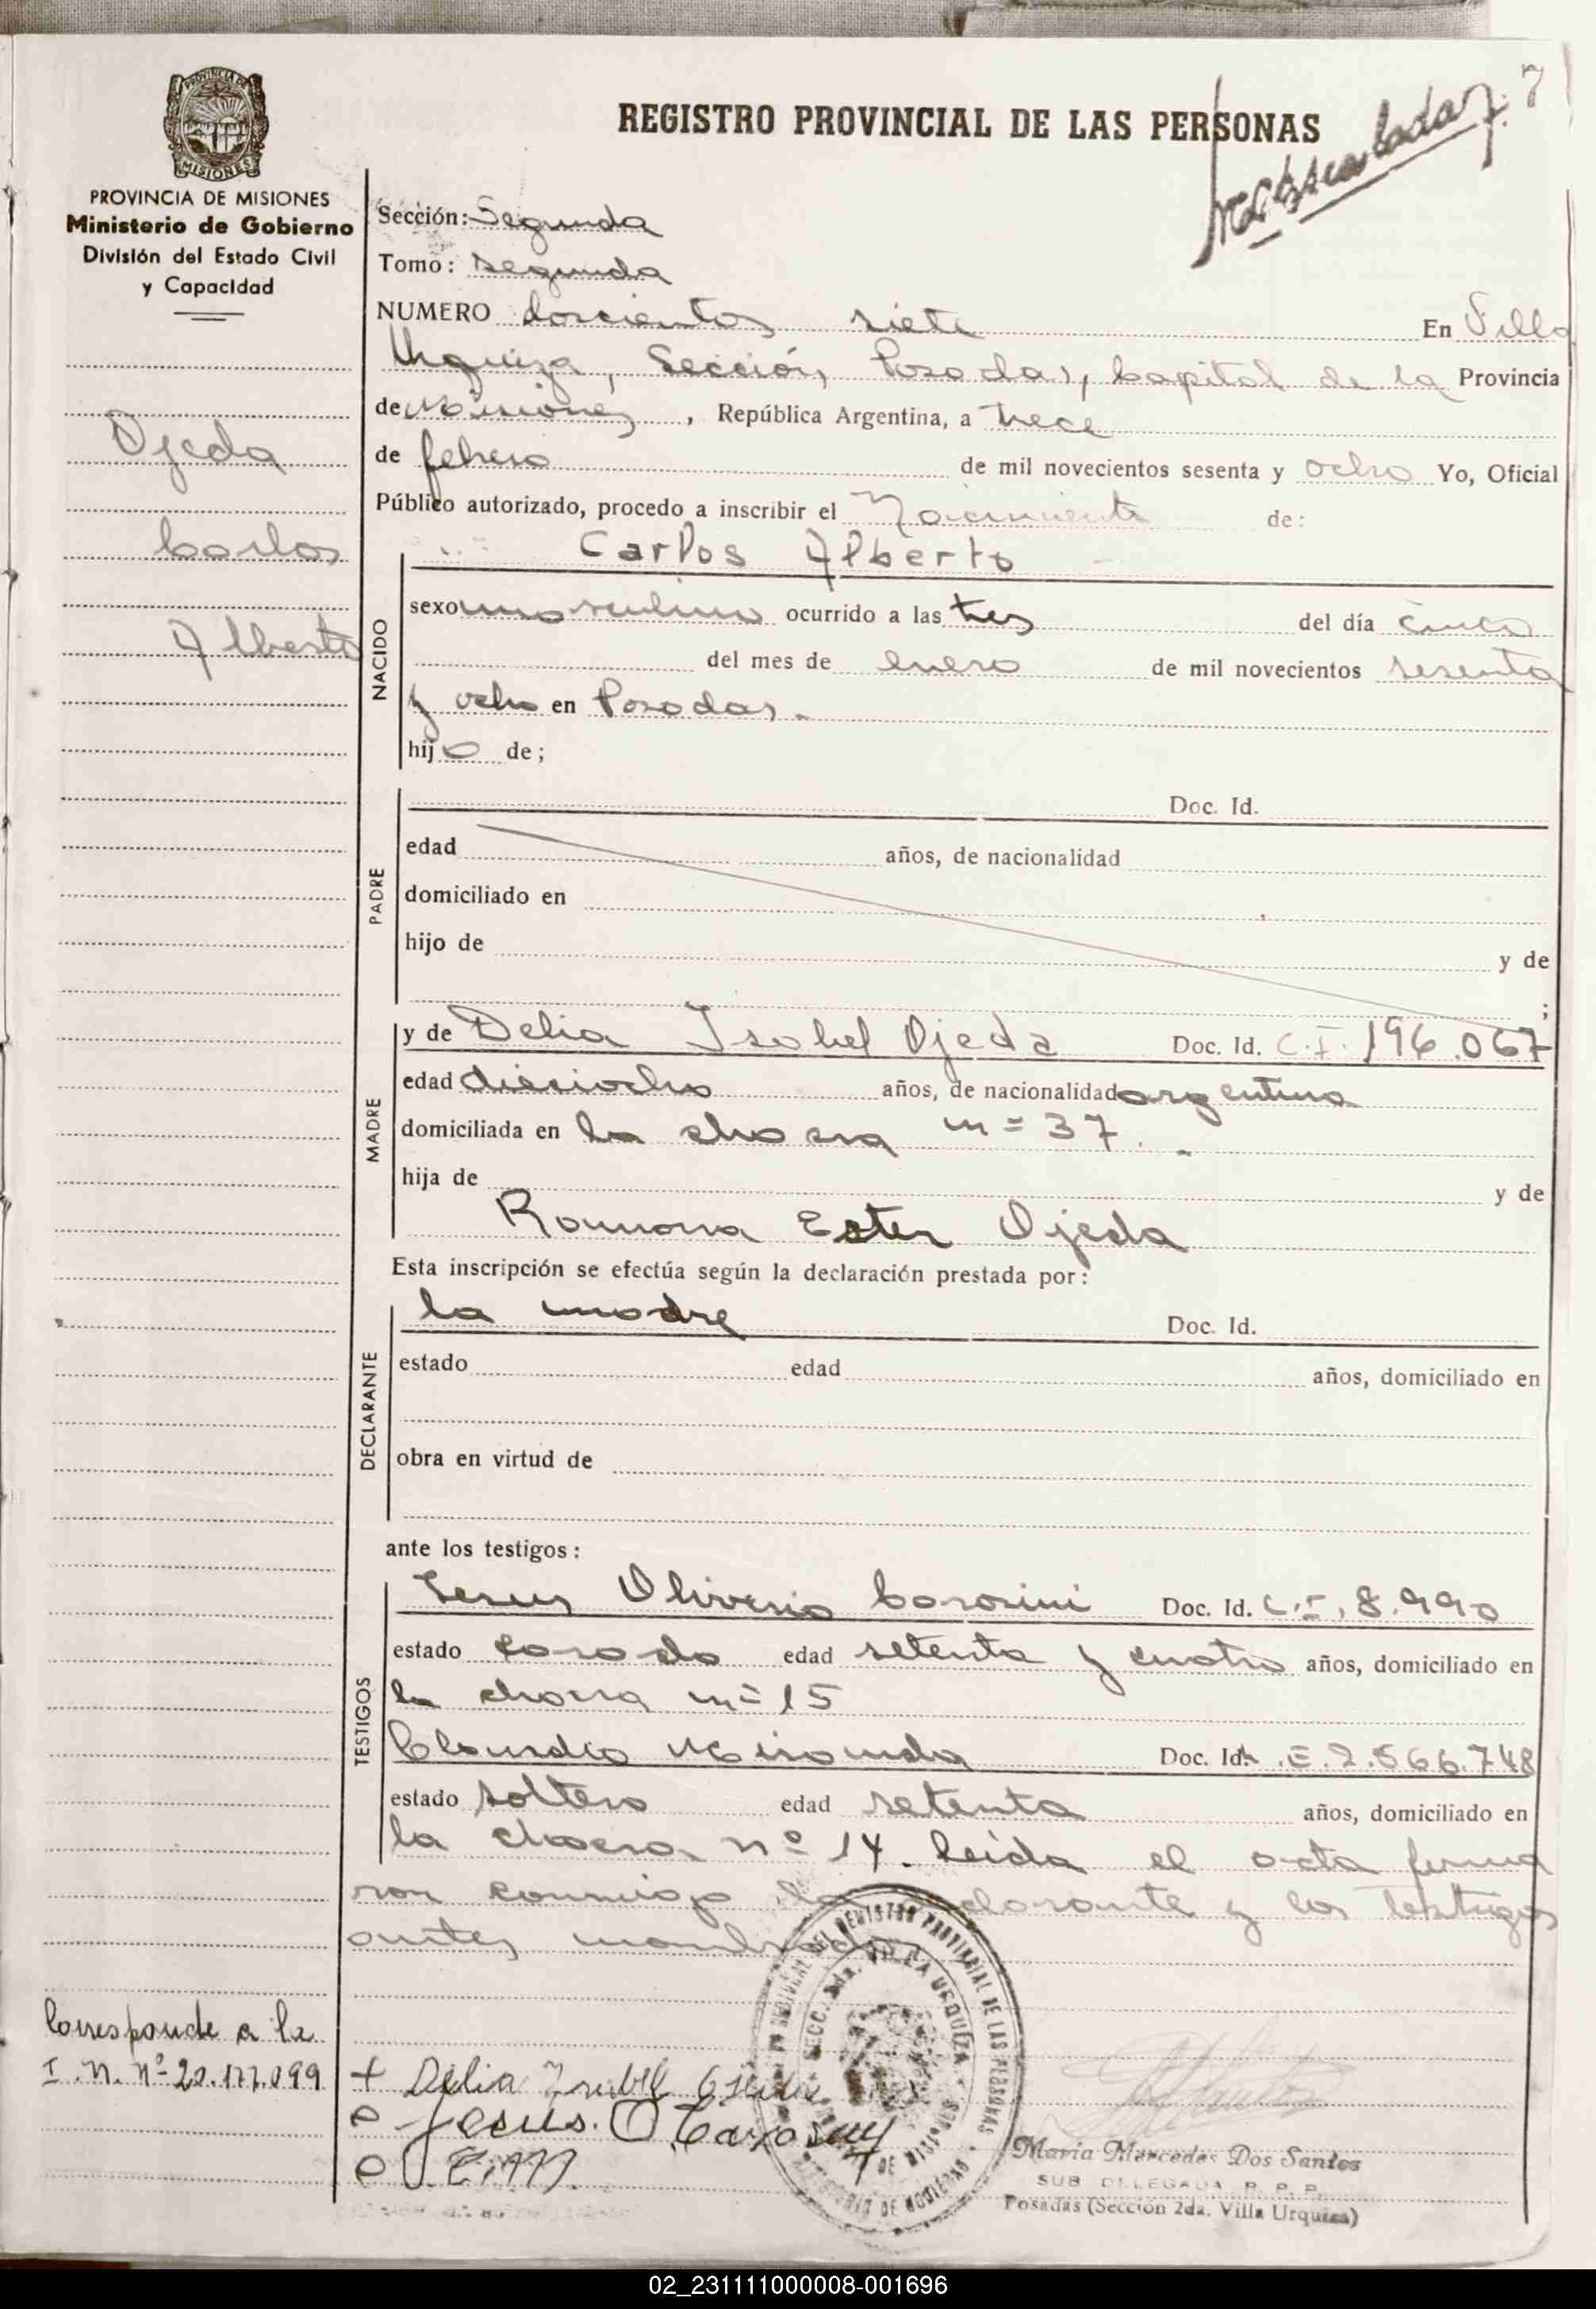 7
PROVINCIA DE
MISIONES
PROVINCIA DE MISIONES
Ministerio de Gobierno
División del Estado Civil
y Capacidad
REGISTRO PROVINCIAL DE LAS PERSONAS
Sección: Segunda
Tomo: Segunda
NUMERO doscientos siete En Villa
Urquiza, Sección, Posadas, Capital de la Provincia
de Misiones, República Argentina, a trece
de febrero de mil novecientos sesenta y ocho Yo, Oficial
Público autorizado, procedo a inscribir el Nacimiento de:
Ojeda
Carlos
Alberto
NACIDO
Carlos Alberto
sexo masculino ocurrido a las tres del día cinco
del mes de enero de mil novecientos sesenta
y ocho en Posadas.
hijo de;
PADRE
Doc. Id.
edad años, de nacionalidad
domiciliado en
hijo de y de
;
MADRE
y de Delia Isabel Ojeda Doc. Id. C.I. 196.067
edad dieciocho años, de nacionalidad argentina
domiciliada en la chacra nº 37.
hija de y de
Ramona Ester Ojeda
Esta inscripción se efectúa según la declaración prestada por:
DECLARANTE
la madre Doc. Id.
estado edad años, domiciliado en
obra en virtud de
ante los testigos:
TESTIGOS
Jesus Oliverio Doc. Id. C.I. 8.990
estado casado edad setenta y cuatro años, domiciliado en
la chacra nº 15
Claudio Miranda Doc. Id. .E.2.566.748
estado soltero edad setenta años, domiciliado en
la chacra nº 14. leída el acta firma
ron conmigo la declarante y los testigos
antes nombrados
Corresponde a la
I.N. Nº 20.177.099
+ Delia Isabel Ojeda
Jesus. O
REGISTRO PROVINCIAL DE LAS PERSONAS
SECC. 2da. VILLA URQUIZA
MINISTERIO DE GOBIERNO
DE MISIONES
Maria Mercedes Dos Santos
SUB DELEGADA R. P. P.
Posadas (Sección 2da. Villa Urquiza)
02_231111000008-001696